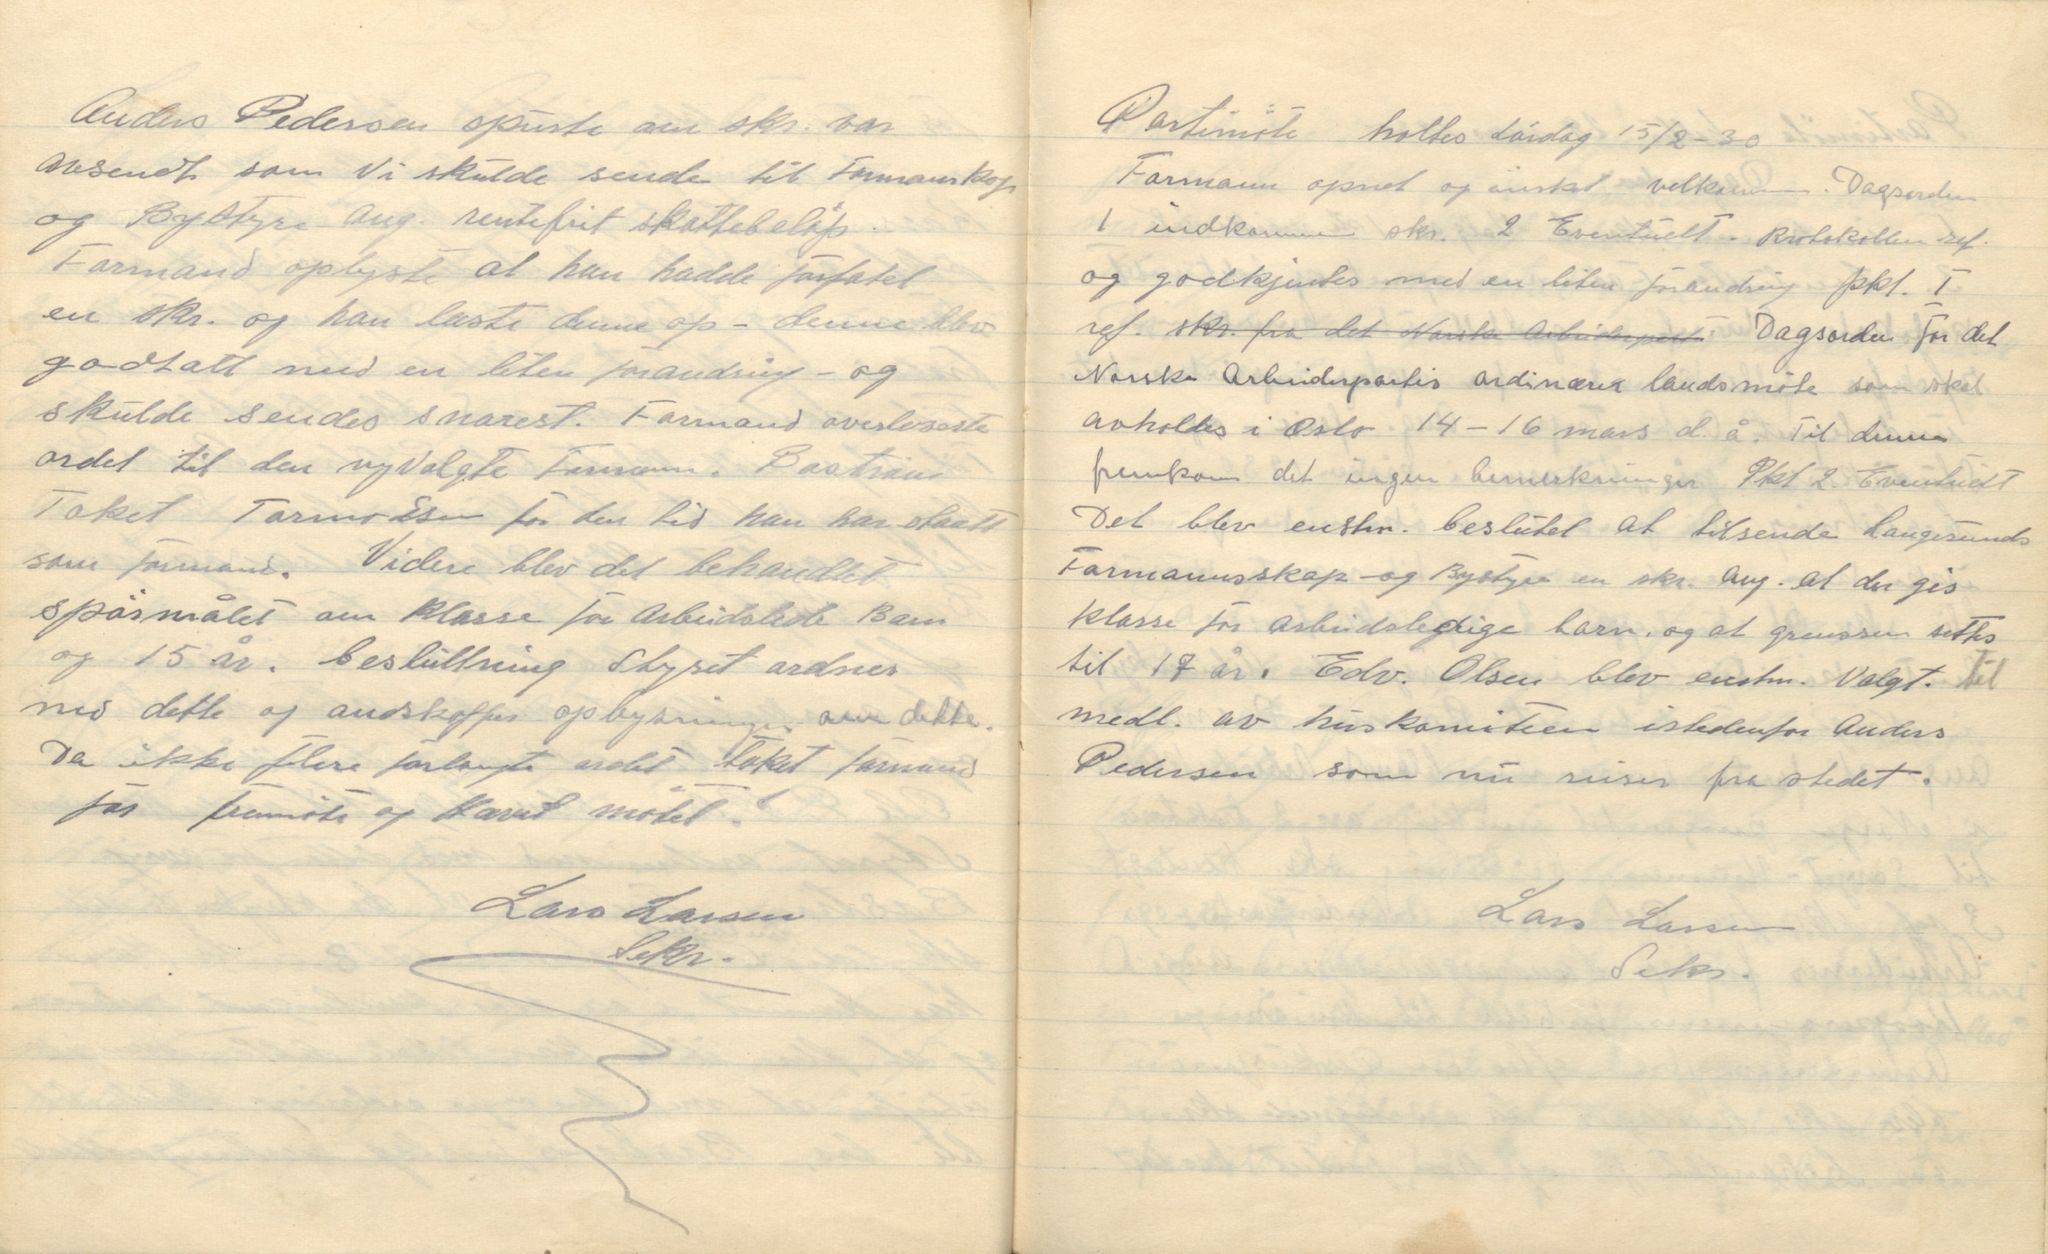 Anders Pedersen spurte om skr. var
avsendt som Vi skulde sende til Formannskap
og Bystyre ang. rentefrit skattebeløp.
Formand oplyste at han hadde forfatet
en skr. og han læste denne op - denne blev
godtatt med en liten forandring - og
skulde sendes snarest. Formand overlot
ordet til den nyvalgte Formann. Bastian
Toket Tormodsen for den tid han har staatt
som formand. Videre blev det behandlet
spørsmålet om Klasse for Arbeidslede Barn
og 15 år. beslutning Styret ordner
med dette og andskaffer oplysninger om dette.
Da ikke flere forlangte ordet takket formand
for fremøte og Hævet møtet.
Lars Larsen
Sekr.
Partimøte holtes Lørdag 15/2-30
Formann opnet og ønsket velkommen. Dagsorden
1 indkommen skr. 2 Eventuelt. Protokollen ref.
og godkjentes med en liten forandring pkt. I
ref. skr. fra det Norske Arbeiderparti Dagsorden for det
Norske Arbeiderpartis ordinære landsmøte som skal
avholdes i Oslo 14-16 mars d. å. Til denne
fremkom det ingen bemerkninger Pkt 2 Eventuelt
Det blev enstm. beslutet at tilsende Langesunds
Formannsskap og Bystyre en skr. Ang. at der gis
klasse for Arbeidsledige barn. og at grensen settes
til 17 år. Edv. Olsen blev enstm. Valgt. til
medl. av huskomiteen istedenfor Anders
Pedersen som nu reiser fra stedet.
Lars Larsen
Sekr.